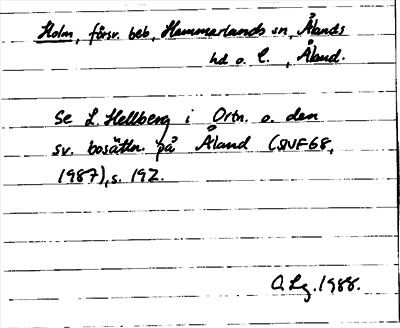 Holm, försv. beb., Hammarlands sn, Ålands
hd o. l., Åland.
Se L. Hellberg i Ortn. o. den
sv. bosättn. på Åland (SNF68,
1987), s. 192.
O. Lg. 1988.